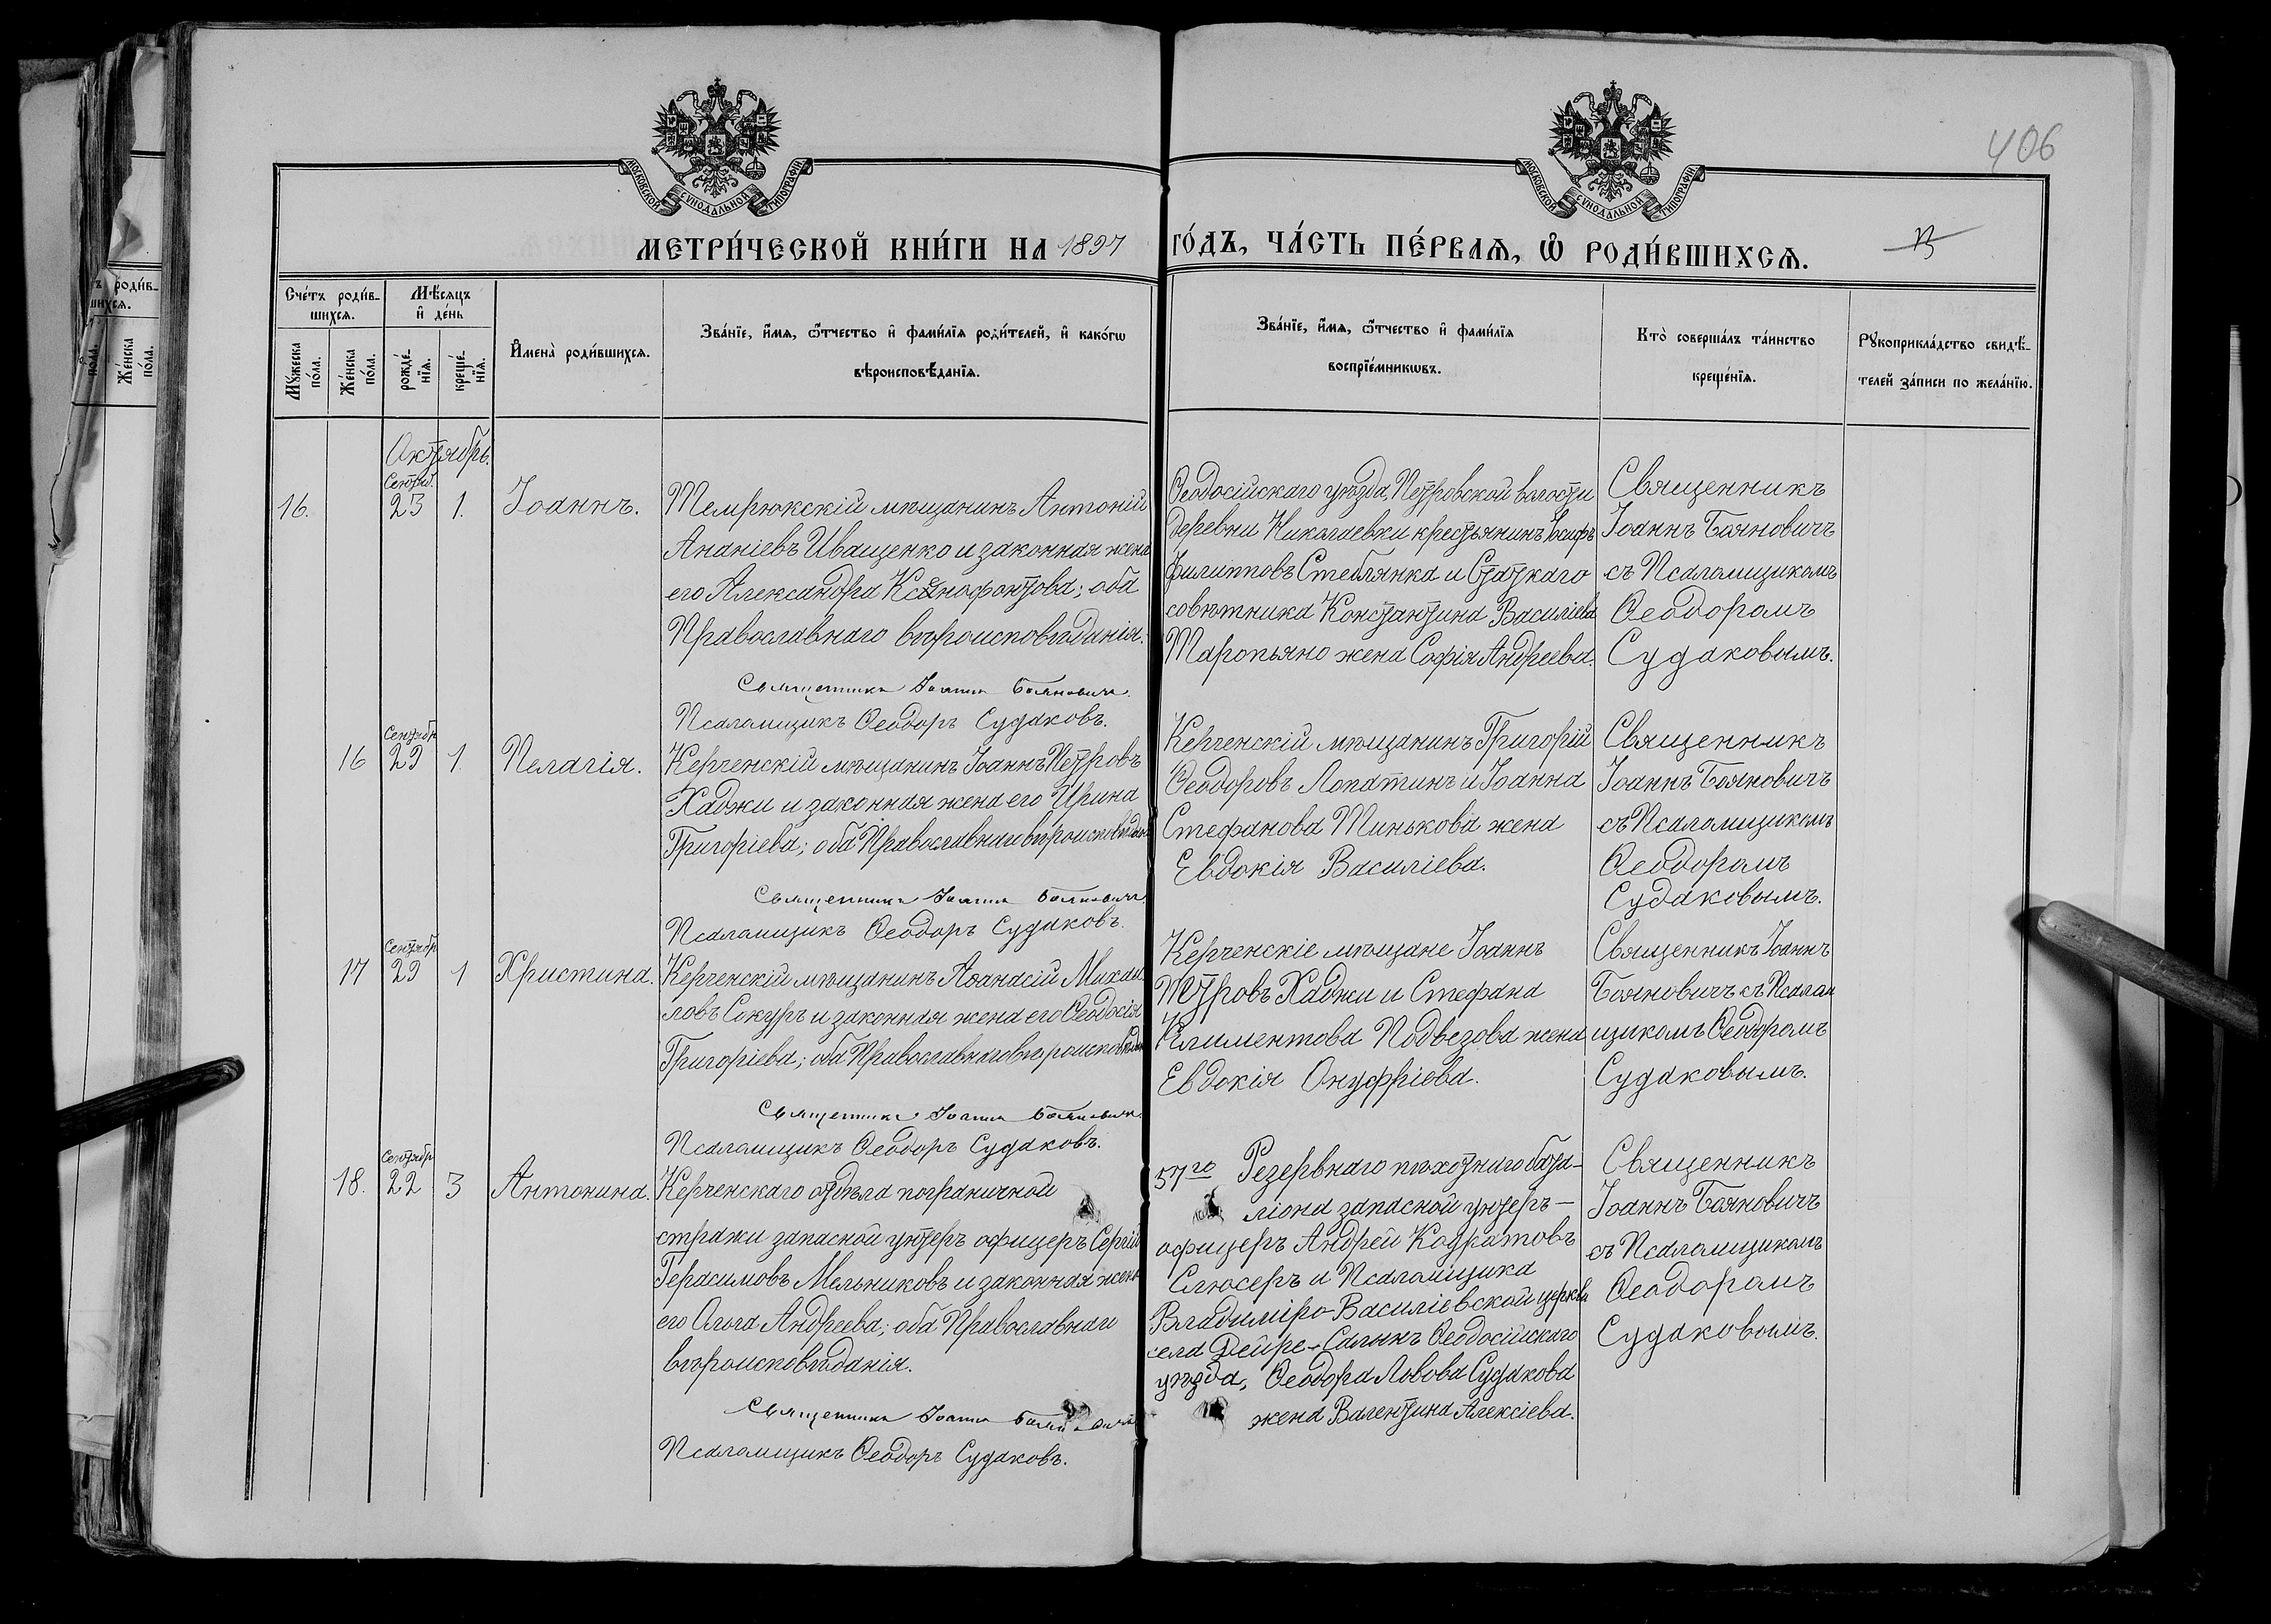 406
МОСКОВСКОЙ СѴНОДАЛЬНОЙ ТИПОГРАФІИ
МОСКОВСКОЙ СѴНОДАЛЬНОЙ ТИПОГРАФІИ
МЕТРИ́ЧЕСКОЙ КНИ́ГИ НА 1897 ГО́ДЪ, ЧА́СТЬ ПЕ́РВАѦ, Ѿ РОДИ́ВШИХСѦ.
Сче́тъ роди́в-
шихсѧ.
Мꙋ́жеска по́ла.
Же́нска по́ла.
Мѣ́сѧцъ и҆ де́нь
рожде́-нїѧ.
креще́-нїѧ.
И҆мена̀ роди́вшихсѧ.
Зва́нїе, и҆́мѧ, ѻ҆́тчество и҆ фами́лїѧ роди́телей, и҆ како́гѡ
вѣроисповѣ́данїѧ.
Зва́нїе, и҆́мѧ, ѻ҆́тчество и҆ фами́лїѧ
воспрїе́мникѡвъ.
Кто̀ соверша́лъ та́инство
креще́нїѧ.
Рꙋкоприкла́дство свидѣ́-
телей за́писи по жела́нїю.
Октябрь.
16.
Сентяб.
23
1.
Іоаннъ.
Темрюкскій мѣщанинъ Антоній
Ананіевъ Иващенко и законная жена
его Александра Ксенофонтова; оба
Православнаго вѣроисповѣданія.
Священникъ Іоаннъ Бояновичъ.
Псаломщикъ Ѳеодоръ Судаковъ.
Ѳеодосійскаго уѣзда, Петровской волости
деревни Николаевки крестьянинъ Іосифъ
Филипповъ Стеблянка и Статскаго
совѣтника Константина Василіева
Таропьяно жена Софія Андреева.
Священникъ
Іоаннъ Бояновичъ
съ Псаломщикомъ
Ѳеодоромъ
Судаковымъ.
16
Сентябр
29
1
Пелагія.
Керченскій мѣщанинъ Іоаннъ Петровъ
Хаджи и законная жена его Ирина
Григоріева; оба Православнаго вѣроисповѣдан
Священникъ Іоаннъ Бояновичъ
Псаломщикъ Ѳеодоръ Судаковъ.
Керченскій мѣщанинъ Григорій
Ѳеодоровъ Лопатинъ и Іоанна
Стефанова Минькова жена
Евдокія Василіева.
Священникъ
Іоаннъ Бояновичъ
съ Псаломщикомъ
Ѳеодоромъ
Судаковымъ.
17
Сентябр
29
1
Христина.
Керченскій мѣщанинъ Аѳанасій Михаи
ловъ Сокуръ и законная жена его Ѳеодосія
Григоріева; оба Православнаго вѣроисповѣдан
Священникъ Іоаннъ Бояновичъ.
Псаломщикъ Ѳеодоръ Судаковъ.
Керченскіе мѣщане Іоаннъ
Петровъ Хаджи и Стефана
Климентова Подвезова жена
Евдокія Онуфріева.
Священникъ Іоаннъ
Бояновичъ съ Псалом
щикомъ Ѳеодоромъ
Судаковымъ.
18.
Сентябр
22
3
Антонина.
Керченскаго отдѣла пограничной
стражи запасной унтеръ офицеръ Сергій
Герасимовъ Мельниковъ и законная жена
его Ольга Андреева; оба Православнаго
вѣроисповѣданія.
Священникъ Іоаннъ Бояновичъ
Псаломщикъ Ѳеодоръ Судаковъ.
57го Резервнаго пѣхотнаго бата-
ліона запасной унтеръ-
офицеръ Андрей Кодратовъ
Слюсеръ и Псаломщика
Владиміро-Василіевской церкви
села Дейре-Салынъ Ѳеодосійскаго
уѣзда, Ѳеодора Львова Судакова
жена Валентина Алексіева.
Священникъ
Іоаннъ Бояновичъ
съ Псаломщикомъ
Ѳеодоромъ
Судаковымъ.